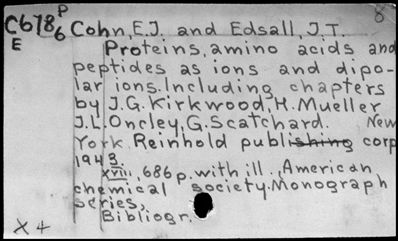 P 8
C678 Cohn, E.J. and Edsall, J.T.
6
E Proteins, amino acids and
peptides as ions and dipo-
lar ions. Including chapters
by J.G. Kirkwood, H. Mueller
J.L. Oncley, G. Scatchard. New
York Reinhold publishing corp
1943
xviii, 686 p. with ill., American
chemical society. Monograph
series,
Bibliogr.
X 4